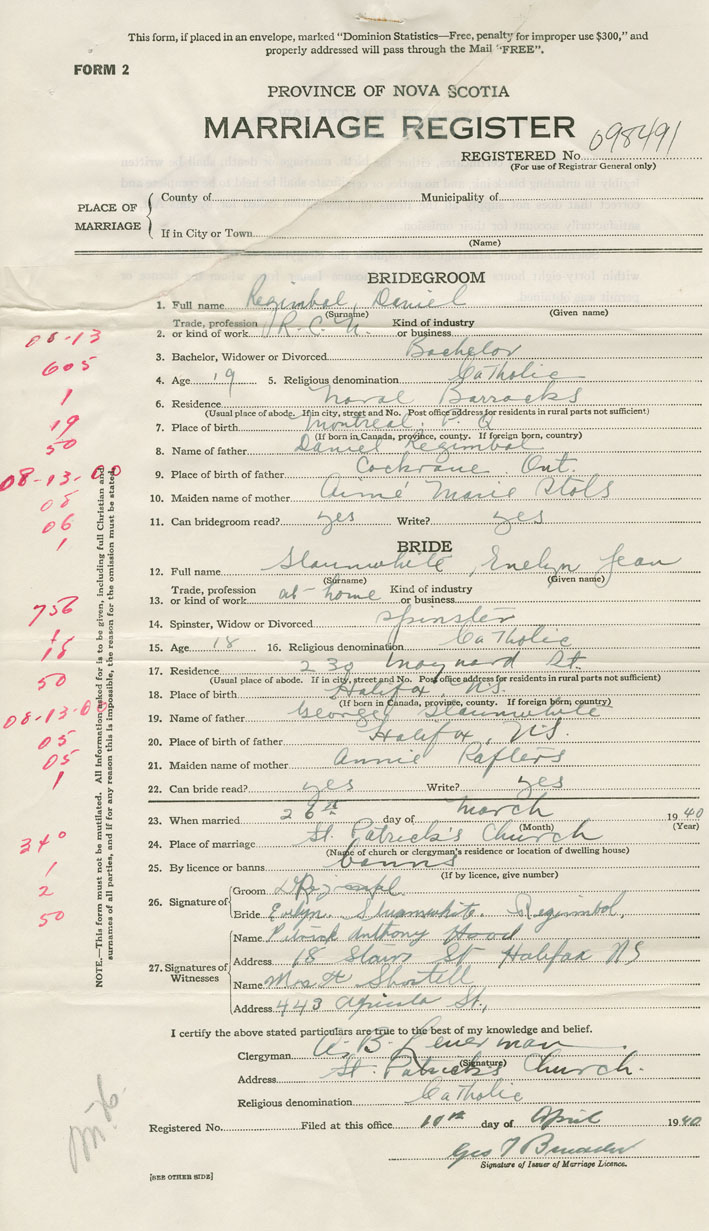 This form, if placed in an envelope, marked "Dominion Statistics—Free, penalty for improper use $300," and
properly addressed will pass through the Mail "FREE".
FORM 2
PROVINCE OF NOVA SCOTIA
MARRIAGE REGISTER
REGISTERED No. 098491
(For use of Registrar General only)
PLACE OF MARRIAGE
County of Municipality of
If in City or Town
(Name)
BRIDEGROOM
1. Full name Regimbal, Daniel
(Surname) (Given name)
2. Trade, profession or kind of work R.C.N. Kind of industry or business
3. Bachelor, Widower or Divorced Bachelor
4. Age 19 5. Religious denomination Catholic
6. Residence Naval Barracks
(Usual place of abode. If in city, street and No. Post office address for residents in rural parts not sufficient)
7. Place of birth Montreal. P. Q
(If born in Canada, province, county. If foreign born, country)
8. Name of father Daniel Regimbal
9. Place of birth of father Cochrane Ont.
10. Maiden name of mother Aimé Marie
11. Can bridegroom read? yes Write? yes
BRIDE
12. Full name Slaunwhite, Evelyn Jean
(Surname) (Given name)
13. Trade, profession or kind of work at-home Kind of industry or business
14. Spinster, Widow or Divorced spinster
15. Age 18 16. Religious denomination Catholic
17. Residence 230 Maynard St.
(Usual place of abode. If in city, street and No. Post office address for residents in rural parts not sufficient)
18. Place of birth Halifax, N.S.
(If born in Canada, province, county. If foreign born, country)
19. Name of father George Slaunwhite
20. Place of birth of father Halifax, N.S.
21. Maiden name of mother Annie
22. Can bride read? yes Write? yes
23. When married 26th day of March 1940
(Month) (Year)
24. Place of marriage St. Patrick's Church
(Name of church or clergyman's residence or location of dwelling house)
25. By licence or banns banns
(If by licence, give number)
26. Signature of
Groom
Bride Evelyn Slaunwhite Regimbal,
27. Signatures of Witnesses
Name Patrick Anthony Hood
Address 18 St Halifax NS
Name Shortell
Address 443 Agricola St.,
I certify the above stated particulars are true to the best of my knowledge and belief.
Clergyman
(Signature)
Address St. Patrick's Church.
Religious denomination Catholic
Registered No. Filed at this office 10th day of April 1940
Geo
Signature of Issuer of Marriage Licence.
[SEE OTHER SIDE]
NOTE.—This form must not be mutilated. All information asked for is to be given, including full Christian and
surnames of all parties, and if for any reason this is impossible, the reason for the omission must be stated.
08-13
605
1
19
50
08-13-00
08
06
1
756
1
18
50
08-13-00
05
05
1
340
1
2
50